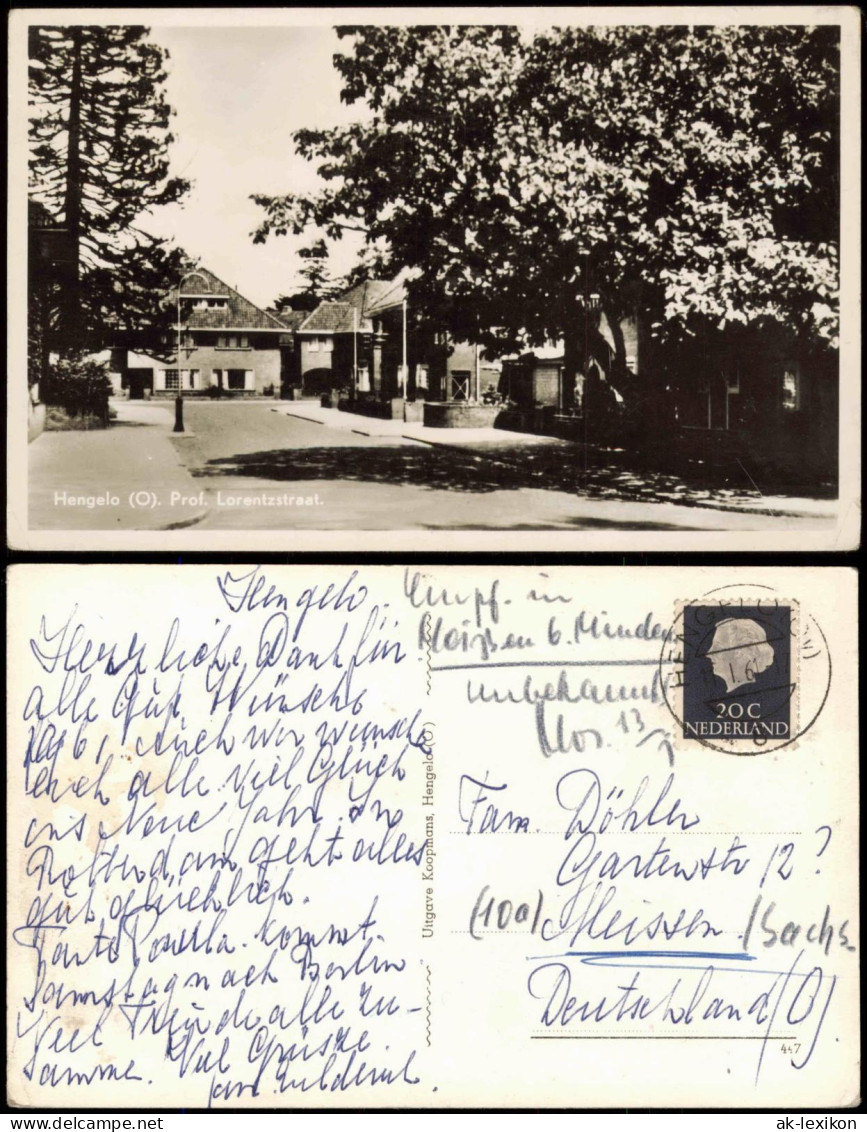 Hengelo (O). Prof. Lorentzstraat.
Hengelo.
Herzliche Dank für
alle gut Wünsche
1961, auch wir wünsche
euch alle viel Glück
ins Neue Jahr. In
Rotterdam geht alles
gut, glücklich.
Tante kommt.
Samstag nach Berlin
Viel Freude alle zu-
samme. Viel Grüsze.
Empf. in
Meissen b. Minden
unbekannt
13/
HENGELO (OV)
1.61
20 C
NEDERLAND
Uitgave Koopmans, Hengelo (O)
Fam. Döhler
Gartenstr 12?
(10a) Meissen /Sachs
Deutschland (O).
447
ak-lexikon